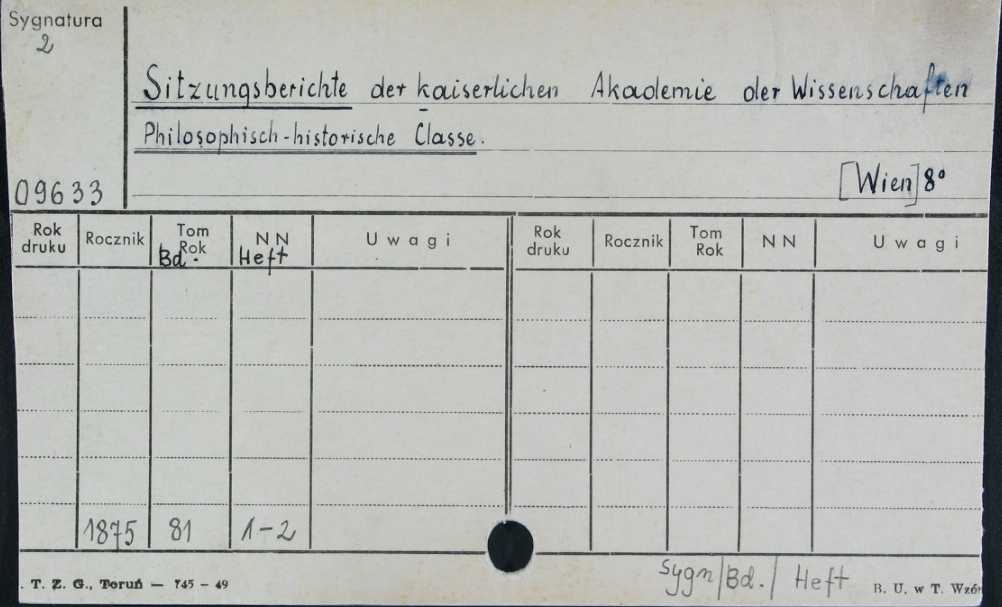 Sygnatura
2
Sitzungsberichte der kaiserlichen Akademie der Wissenschaften
Philosophisch-historische Classe.
[Wien] 8°
09633
Rok druku Rocznik Tom Rok Bd. NN Heft Uwagi Rok druku Rocznik Tom Rok NN Uwagi
1875 81 1-2
Sygn/Bd./Heft
. T. Z. G., Toruń — 745 - 49 B. U. w T. Wzór